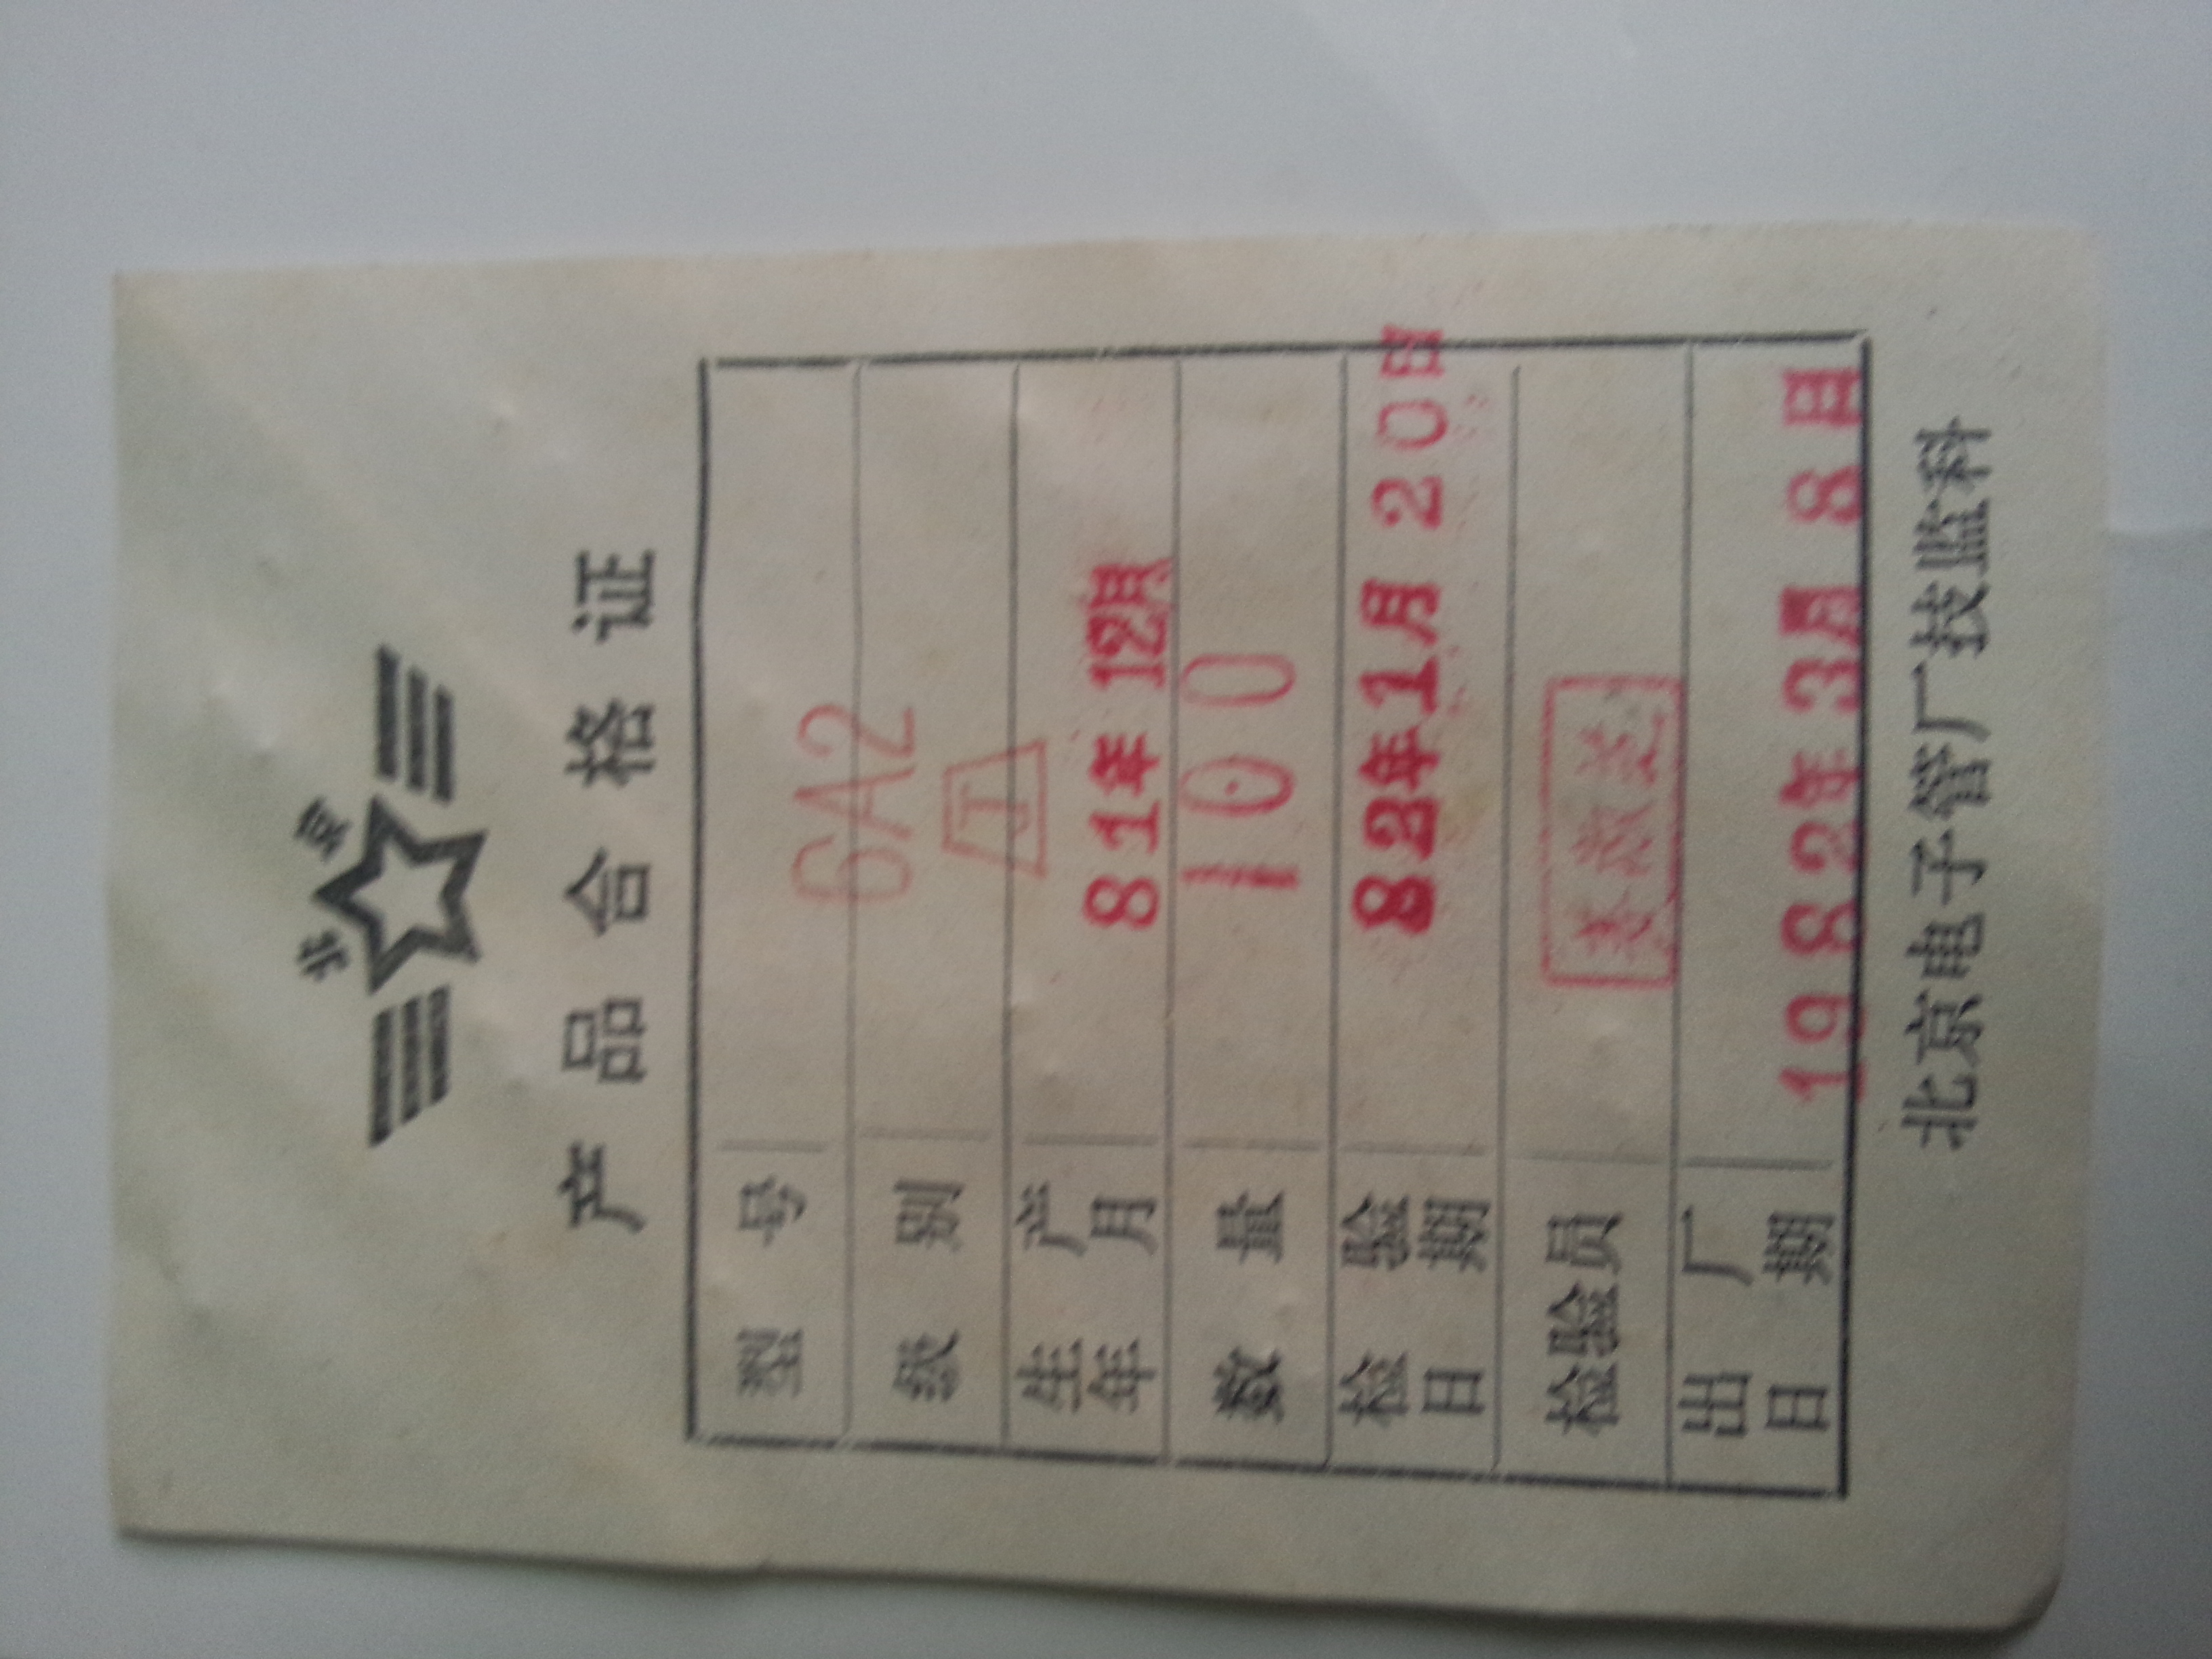 北京
产品合格证
型号 6A2
级别 T
生产年月 81年12月
数量 100
检验日期 82年1月20日
检验员
出厂日期 1982年3月8日
北京电子管厂技监科